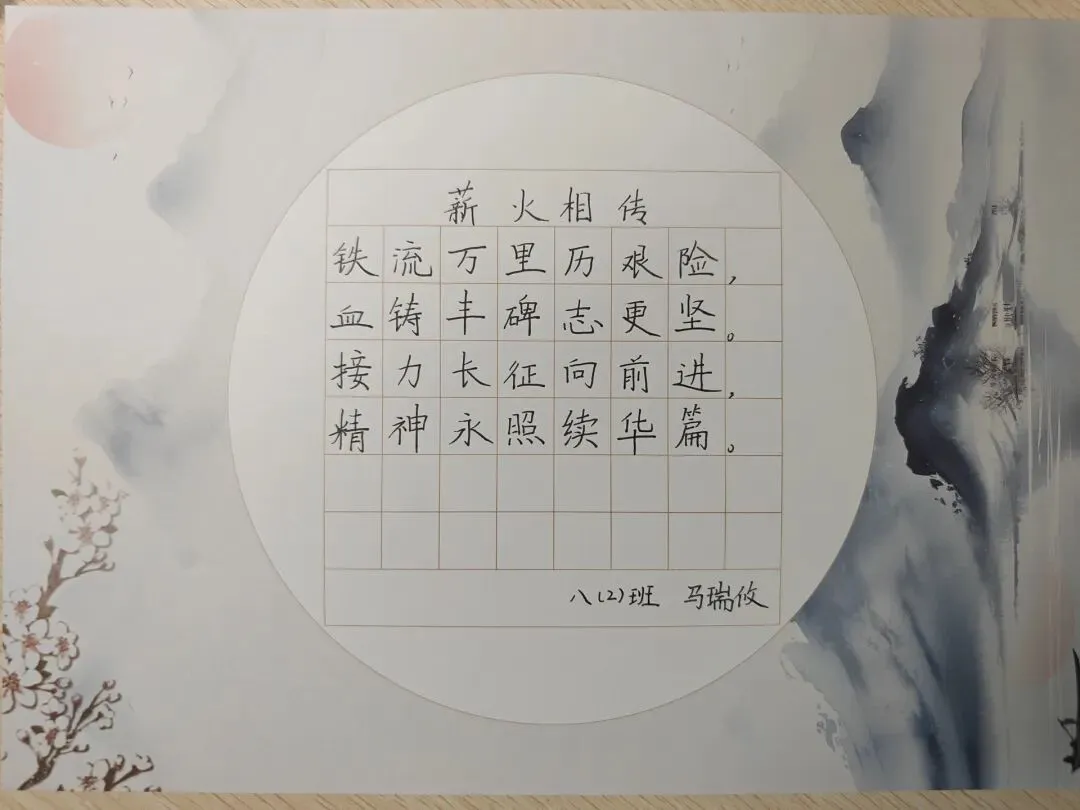 薪火相传
铁流万里历艰险，
血铸丰碑志更坚。
接力长征向前进，
精神永照续华篇。
八(2)班 马瑞攸